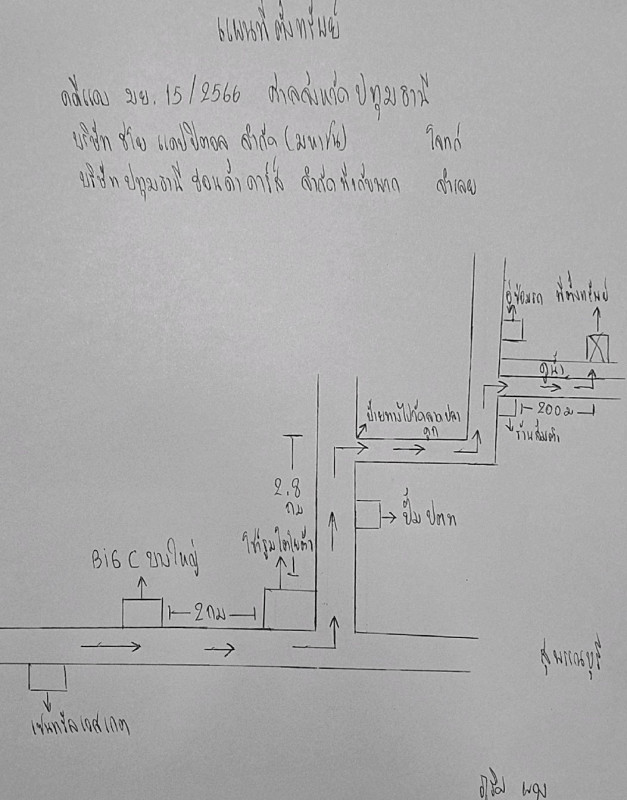 แผนที่ตั้งทรัพย์
คดีแดง ผบ. 15/2566 ศาลจังหวัดปทุมธานี
บริษัท ซัมมิท แคปปิตอล จำกัด (มหาชน) โจทก์
บริษัท ปทุมธานี ฮอนด้า คาร์ส์ จำกัด พิทักษ์ จำเลย
อู่ซ่อมรถ ที่ตั้งทรัพย์
คูน้ำ
200 ม
ร้านส้มตำ
ป้ายทางไปวัดลาดปลาดุก
2.8
กม
ปั๊ม ปตท
โชว์รูมโตโยต้า
BiG C บางใหญ่
2 กม
สุพรรณบุรี
เซนทรัลเวสเกต